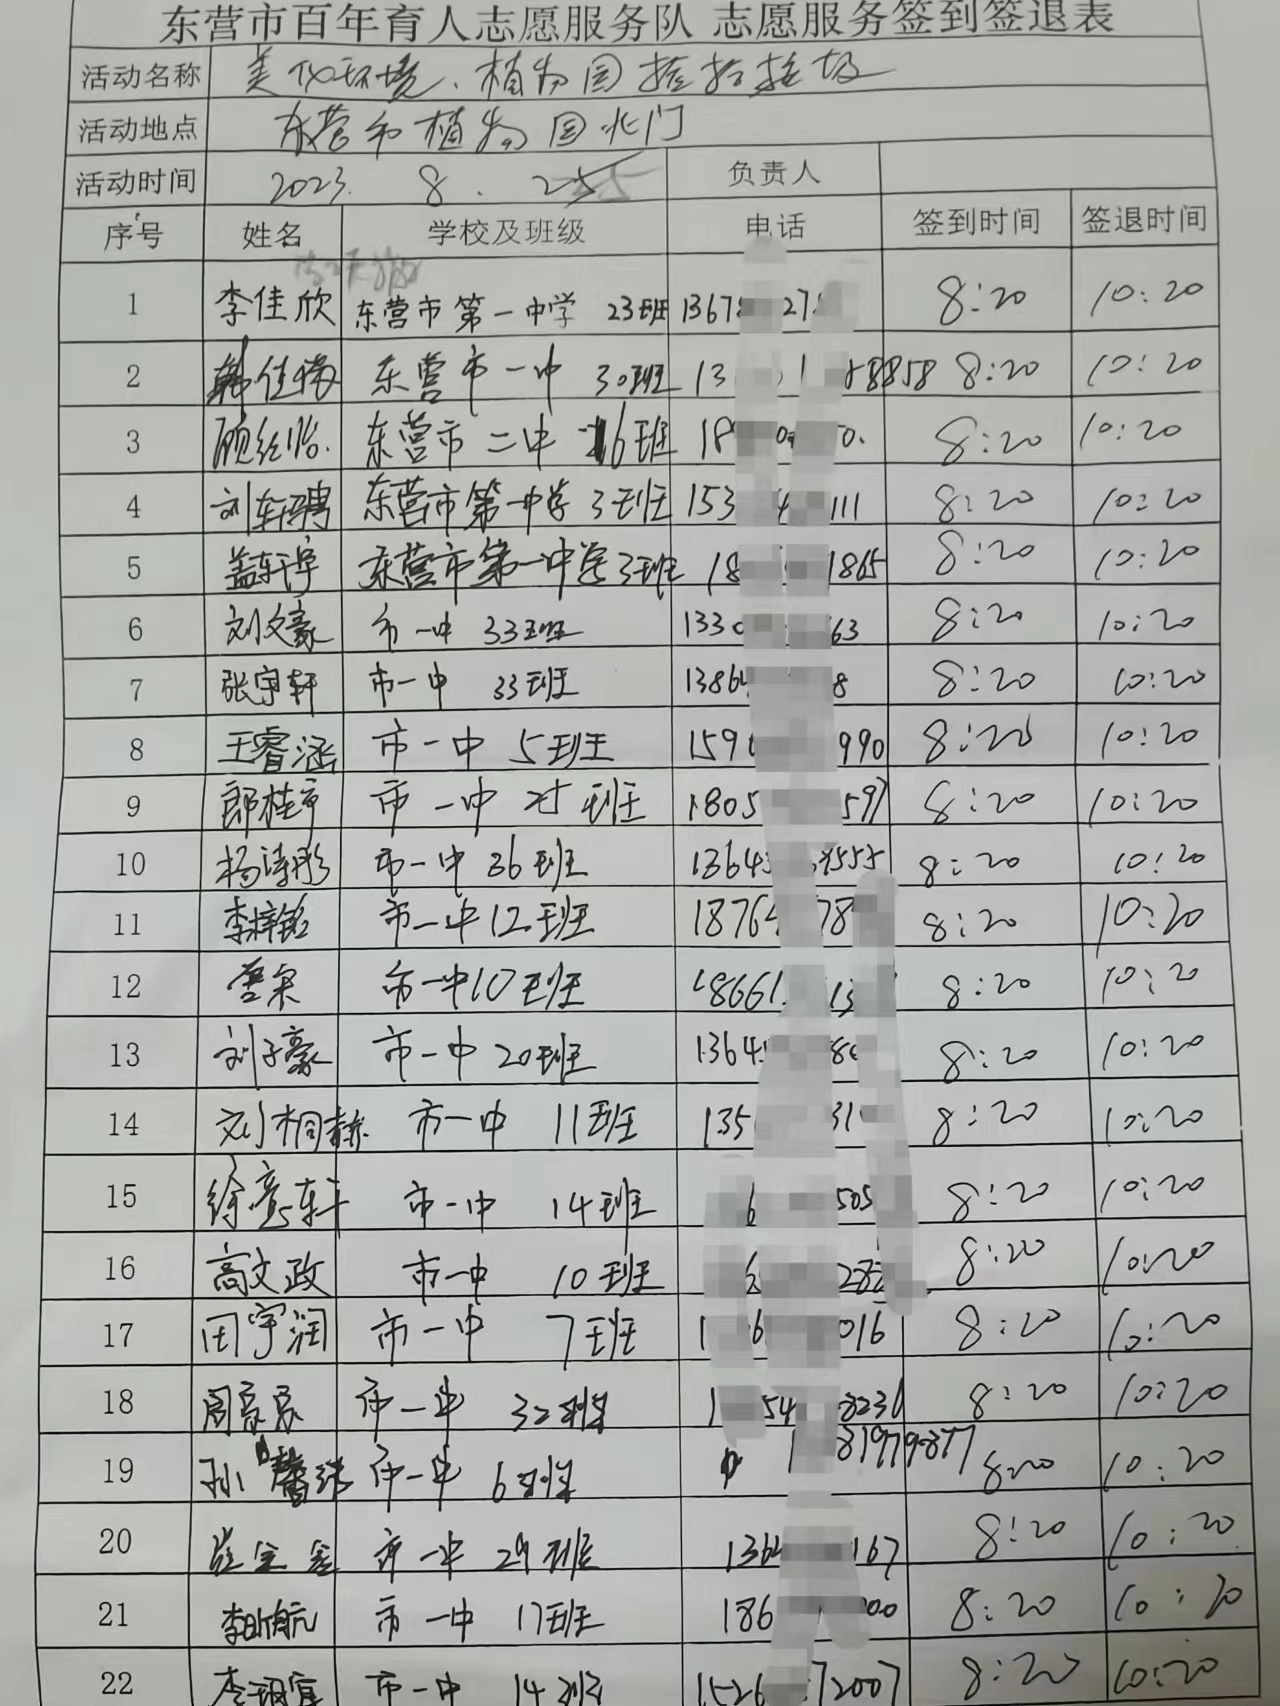 东营市百年育人志愿服务队 志愿服务签到签退表
活动名称 美化环境、植物园捡拾垃圾
活动地点 东营市植物园北门
活动时间 2023. 8. 25 负责人
序号 姓名 学校及班级 电话 签到时间 签退时间
1 李佳欣 东营市第一中学 23班 1367 27 8:20 10:20
2 韩佳 东营市一中 30班 13 8858 8:20 10:20
3 顾红怡. 东营市二中 16班 18 0. 8:20 10:20
4 刘轩骋 东营市第一中学 3班 153 111 8:20 10:20
5 盖轩宇 东营市第一中学 3班 18 1865 8:20 10:20
6 刘文豪 市一中 33班 1330 63 8:20 10:20
7 张宇轩 市一中 33班 1386 8 8:20 10:20
8 王睿涵 市一中 5班 159 990 8:20 10:20
9 郎桂 市一中 25班 1805 597 8:20 10:20
10 杨涛彤 市一中 36班 1364 555 8:20 10:20
11 李梓铭 市一中 12班 1876 78 8:20 10:20
12 市一中 10班 18661 13 8:20 10:20
13 刘子豪 市一中 20班 1364 8 8:20 10:20
14 刘桐赫 市一中 11班 135 31 8:20 10:20
15 徐意轩 市一中 14班 6 505 8:20 10:20
16 高文政 市一中 10班 6 282 8:20 10:20
17 田宇润 市一中 7班 1 6 016 8:20 10:20
18 周 市一中 32班 1 54 8236 8:20 10:20
19 孙馨 市一中 6班 1 81979877 8:20 10:20
20 市一中 29班 136 167 8:20 10:20
21 李昕航 市一中 17班 186 000 8:20 10:20
22 李 市一中 14班 1526 72007 8:20 10:20